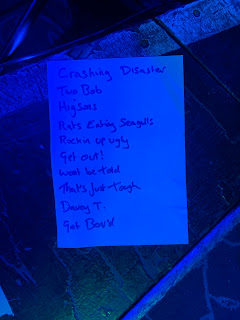 Crashing Disaster
Two Bob
HigSons
Rats Eating Seagulls
Rockin up ugly
Get out!
wont be told
That's Just Tough
Davey T.
Got Bou'd